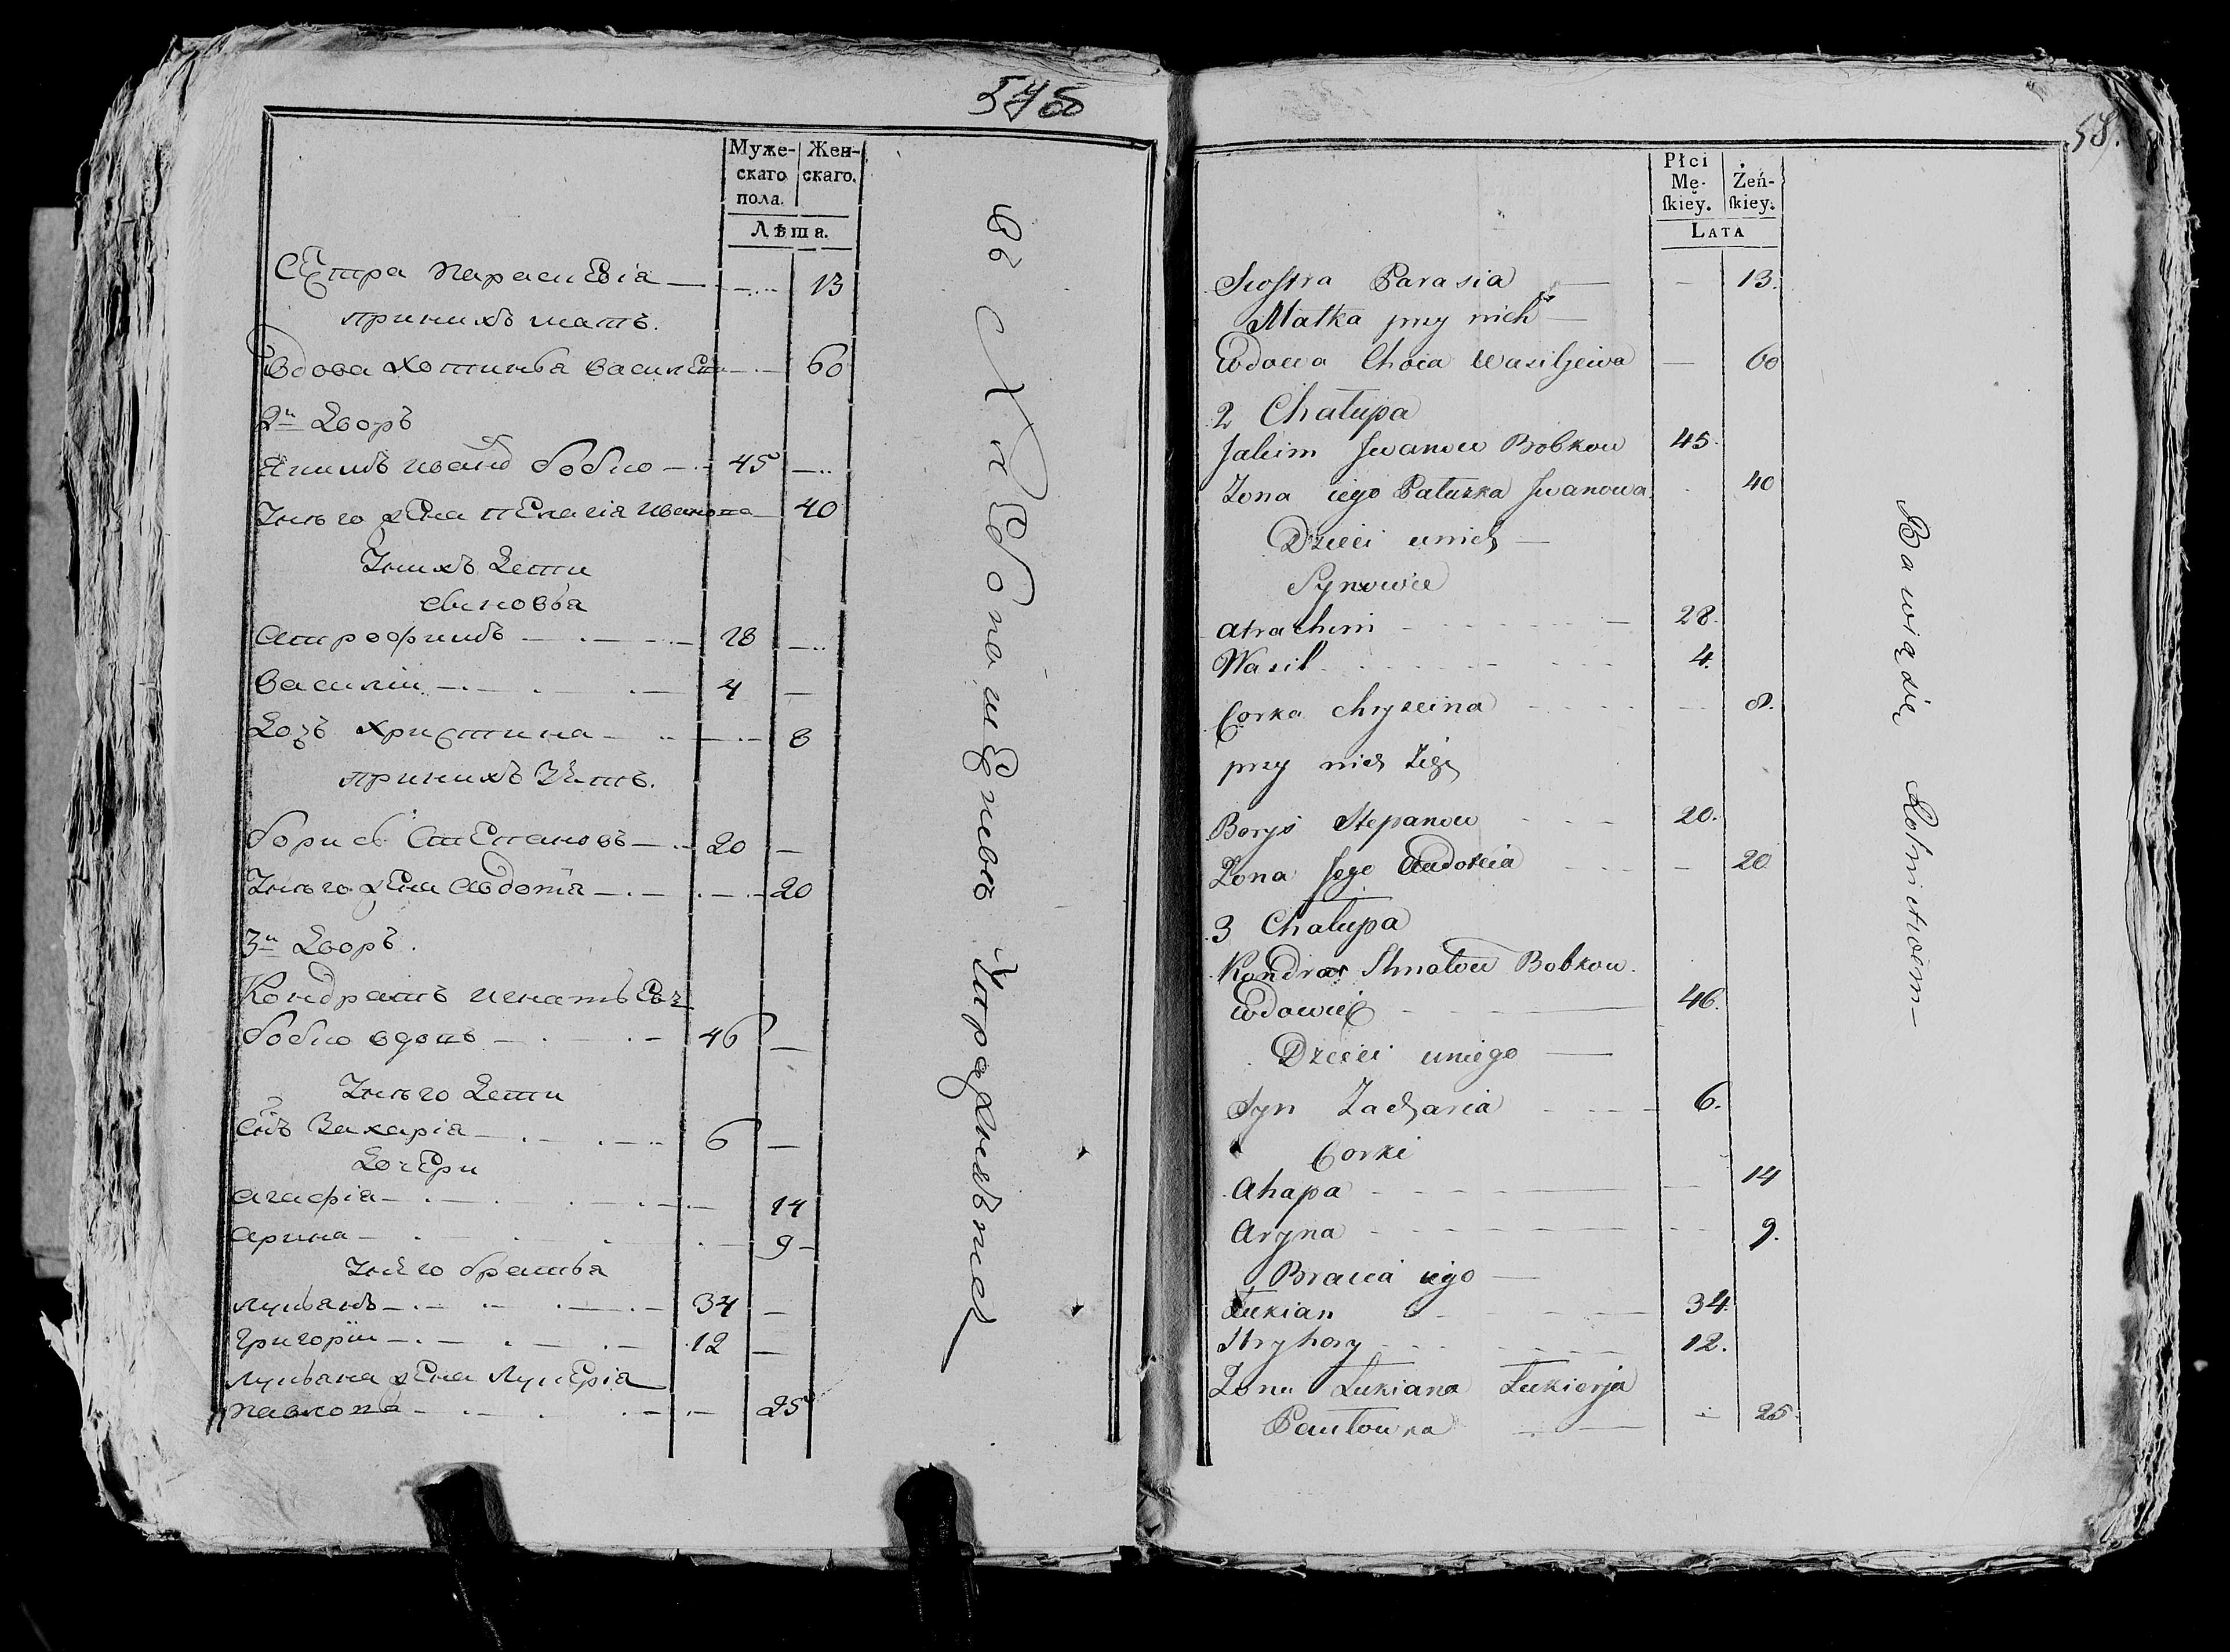 57об
Муже-
скаго
пола.
Жен-
скаго.
Лѣта.
Сестра Параскевiя 13
при нихъ мать.
Вдова Хотинья Василева 60
2й дворъ
Якимъ Иванов Бобко 45
У него жена Пелагiя Иванова 40
У нихъ дети
сыновья
Атрофимъ 28
Василiи 4
Дочь Христина 8
при нихъ зять.
Борисъ Степановъ 20
У него жена Авдотiя 20
3й дворъ.
Кондратъ Игнатьевъ
Бобко вдовъ 46
У него дети
сынъ Захарiя 6
дочери
Агафiя 14
Арина 9
У него братья
Лукьянъ 34
Григорiи 12
Лукьяна жена Лукерiя
Павлова 25
Въ Хлебопашенномъ Упражненiе
58.
Płci
Mę-
ſkiey.
Żeń-
ſkiey.
LATA
Siostra Parasia 13.
Matka przy nich
Wdowa Choća Wasiljewa 60
2 Chałupa
Jakim Jwanow Bobkow 45.
Zona iego Pałuzka Jwanowa 40
Dzieci u nich
Synowie
Atrachim 28.
Wasil 4.
Corka Chryscina 8.
przy nich Zięć
Borys Stepanow 20.
Zona Jego Audokia 20
3 Chałupa
Kondrat Ihnatow Bobkow.
Wdowiec 46.
Dzieci u niego
Syn Zacharia 6.
Corki
Ahapa 14
Aryna 9.
Bracia iego
Łukian 34.
Hryhory 12.
Zona Łukiana Łukierja
Pawłowna 25.
Bawią się Rolnictwem